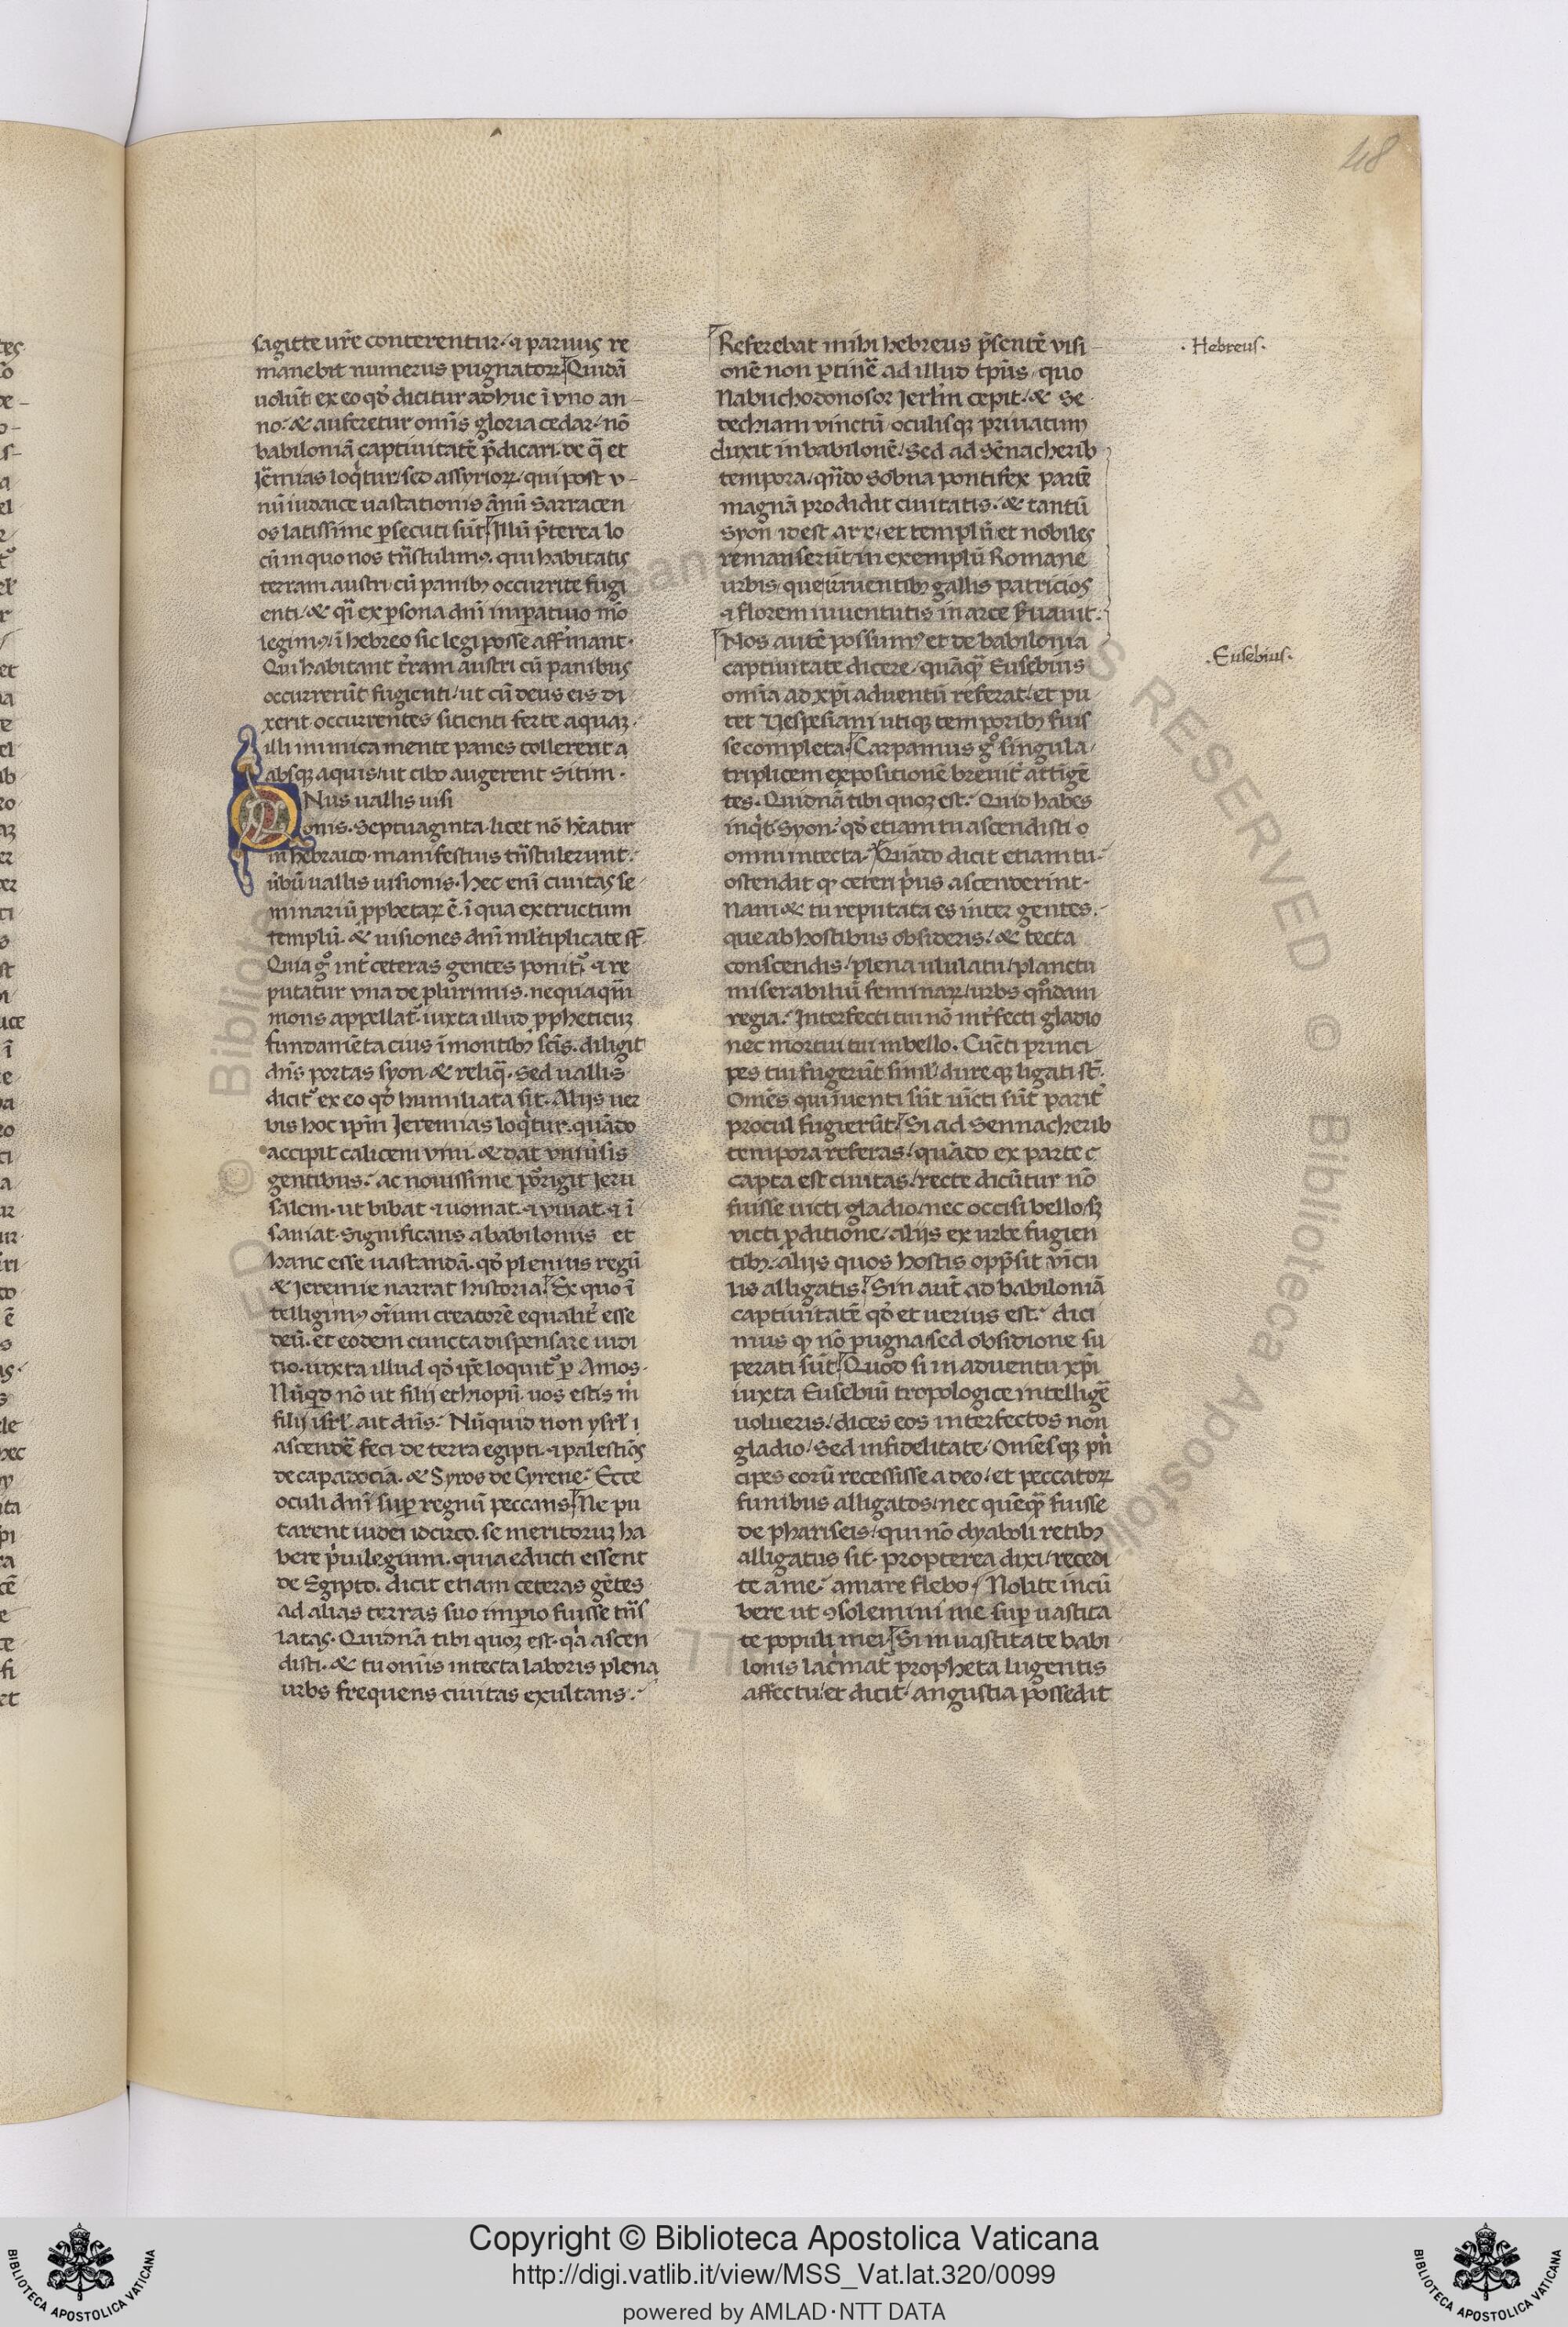 48
sagitte ur̃e conterentur / ⁊ paruus re
manebit numerus pugnatoꝝ Quidã
uolũt ex eo qd̾ dicitur adhuc ĩ vno an-
no· & auferetur om̃is gloria cedar / nõ
babiloniã captiuitatẽ p̃dicari· de q̃ et
Jẽmias loq̃tur / sed assyrioꝝ / qui post v-
nũ iudaice uastationis ãnũ Sarracen
os latissime ꝑsecuti sũt Illũ p̃terea lo
cũ in quo nos tñstulimꝰ· qui habitatis
terram austri cũ panibꝫ occurrite fugi
enti / & q̃ ex ꝑsona dñi imꝑatiuo mõ
legimꝰ / ĩ hebreo sic legi posse affirmant·
Qui habitant tr̃am austri cũ panibus
occurrerũt fugienti / ut cũ deus eis di
xerit occurrentes sitienti ferte aquaꝫ·
illi inimica mente panes tollerent a
absqꝫ aquis / ut cibo augerent sitim·
ONus uallis uisi
onis· Septuaginta· licet nõ hẽatur
in hebraico· manifestius tñstulerunt·
ũbũ uallis uisionis· Hec eni ciuitas se
minariũ ꝓphetaꝝ ẽ· ĩ qua extructum
templũ· & uisiones dñi ml̃tiplicate st̃·
Quia g̊ int̃ ceteras gentes ponit᷑ ⁊ re
putatur vna de plurimis· nequaqm̃
mons appellat᷑· iuxta illud ꝓpheticuꝫ
fundamẽta eius ĩ montibꝫ scĩs· diligit
dñs portas syon & reliq̃· Sed uallis
dicit᷑ ex eo qd̾ humiliata sit· Alijs uer
bis hoc ip̃m Jeremias loq̃tur· quãdo
accipit calicem vini· & dat vniũsis
gentibus· ac nouissime porigit Jeru
salem· ut bibat ⁊ uomat· ⁊ viuat· ⁊ ĩ
saniat· Significans a babiloniis et
hanc esse uastandã· qd̾ plenius regũ
& Jeremie narrat historia· Ex quo ĩ
telligimꝰ om̃ium creatorẽ equalit̃ esse
deũ· et eodem cuncta dispensare iudi
tio· iuxta illud qd̾ ip̃e loquit᷑ ꝑ Amos·
Nũqd̾ nõ ut filij ethiopũ· uos estis m̃
filij isrl̃· ait dñs· Nũquid non ysrl̃ ı
ascendẽ feci de terra egipti· ⁊ palestiõs
de capadocia· & Syros de Cyrene· Ecce
oculi dñi suꝑ regnũ peccans Ne pu
tarent iudei idcirco· se meritoruꝫ ha
bere p̃uilegium· quia educti essent
de Egipto· dicit etiam ceteras gẽtes
ad alias terras suo imꝑio fuisse tñs
latas· Quidnã tibi quoꝫ est· qa ascen
disti· & tu om̃is in tecta laboris plena
urbs frequens ciuitas exultans·
Referebat mihi hebreus p̃sentẽ visi
onẽ non ꝑtinẽ ad illud tp̃us / quo
Nabuchodonosor Jerl̃m cepit· & Se
dechiam vinctũ / oculisqꝫ priuatum
duxit in babilonẽ / Sed ad Sẽnacherib
tempora / qñdo Sobna pontifex partẽ
magnã prodidit ciuitatis· & tantũ
Syon id est arx / et templũ et nobiles
remanserũt / in exemplũ Romane
urbis / que irruentibꝫ gallis patricios
⁊ florem iuuentutis in arce ẜuauit·
Nos autẽ possumꝰ et de babilonia
captiuitate dicere / quãq̃ Eusebius
omĩa ad xp̃i aduentũ referat / et pu
tet Vespesiani utiqꝫ temporibꝫ suis
se completa· Carpamus g̊ singula /
triplicem expositionẽ breuit̃ attĩgẽ
tes· Quidnã tibi quoꝫ est· Quid habes
inq̃t Syon· qd̾ etiam tu ascendisti o
omni in tecta· Quãdo dicit etiam tu·
ostendit ꝙ ceteri p̃us ascenderint·
Nam & tu reputata es inter gentes·
que ab hostibus obsideris· & tecta
conscendis / plena ululatu / planctu
miserabiliũ feminaꝝ / urbs qñdam
regia· Interfecti tui nõ int̃fecti gladio
nec mortui tui in bello· Cuncti princi
pes tui fugerũt siml̃ / dureqꝫ ligati st̃·
Om̃es qui ĩuenti sũt uĩcti sũt parit̃
procul fugierũt· Si ad Sennacherib
tempora referas / quãdo ex parte c
capta est ciuitas / recte dicũtur nõ
fuisse uicti gladio / nec occisi bello / sꝫ
victi ꝓditione / alijs ex urbe fugien
tibꝫ· alijs quos hostis opp̃sit vĩcu
lis alligatis· Sin aut̃ ad babiloniã
captiuitatẽ qd̾ et uerius est· dici
mus ꝙ nõ pugna / sed obsidione su
perati sũt Quod si in aduentu xp̃i
iuxta Eusebiũ tropologice intelligẽ
uolueris / dices eos interfectos non
gladio / Sed infidelitate / Om̃esqꝫ pñ
cipes eorũ recessisse a deo / et peccatoꝝ
funibus alligatos / nec quẽq̃ fuisse
de phariseis / qui nõ dyaboli retibꝫ
alligatus sit· propterea dixi / recedi
te a me· amare flebo / Nolite incũ
bere ut ꝯsolemini me suꝑ uastita
te populi mei Si in uastitate babi
lonis lac̃mat᷑ propheta lugentis
affectu et dicit / angustia possedit
· Hebreus·
· Eusebius·
Copyright © Biblioteca Apostolica Vaticana
http://digi.vatlib.it/view/MSS_Vat.lat.320/0099
powered by AMLAD·NTT DATA